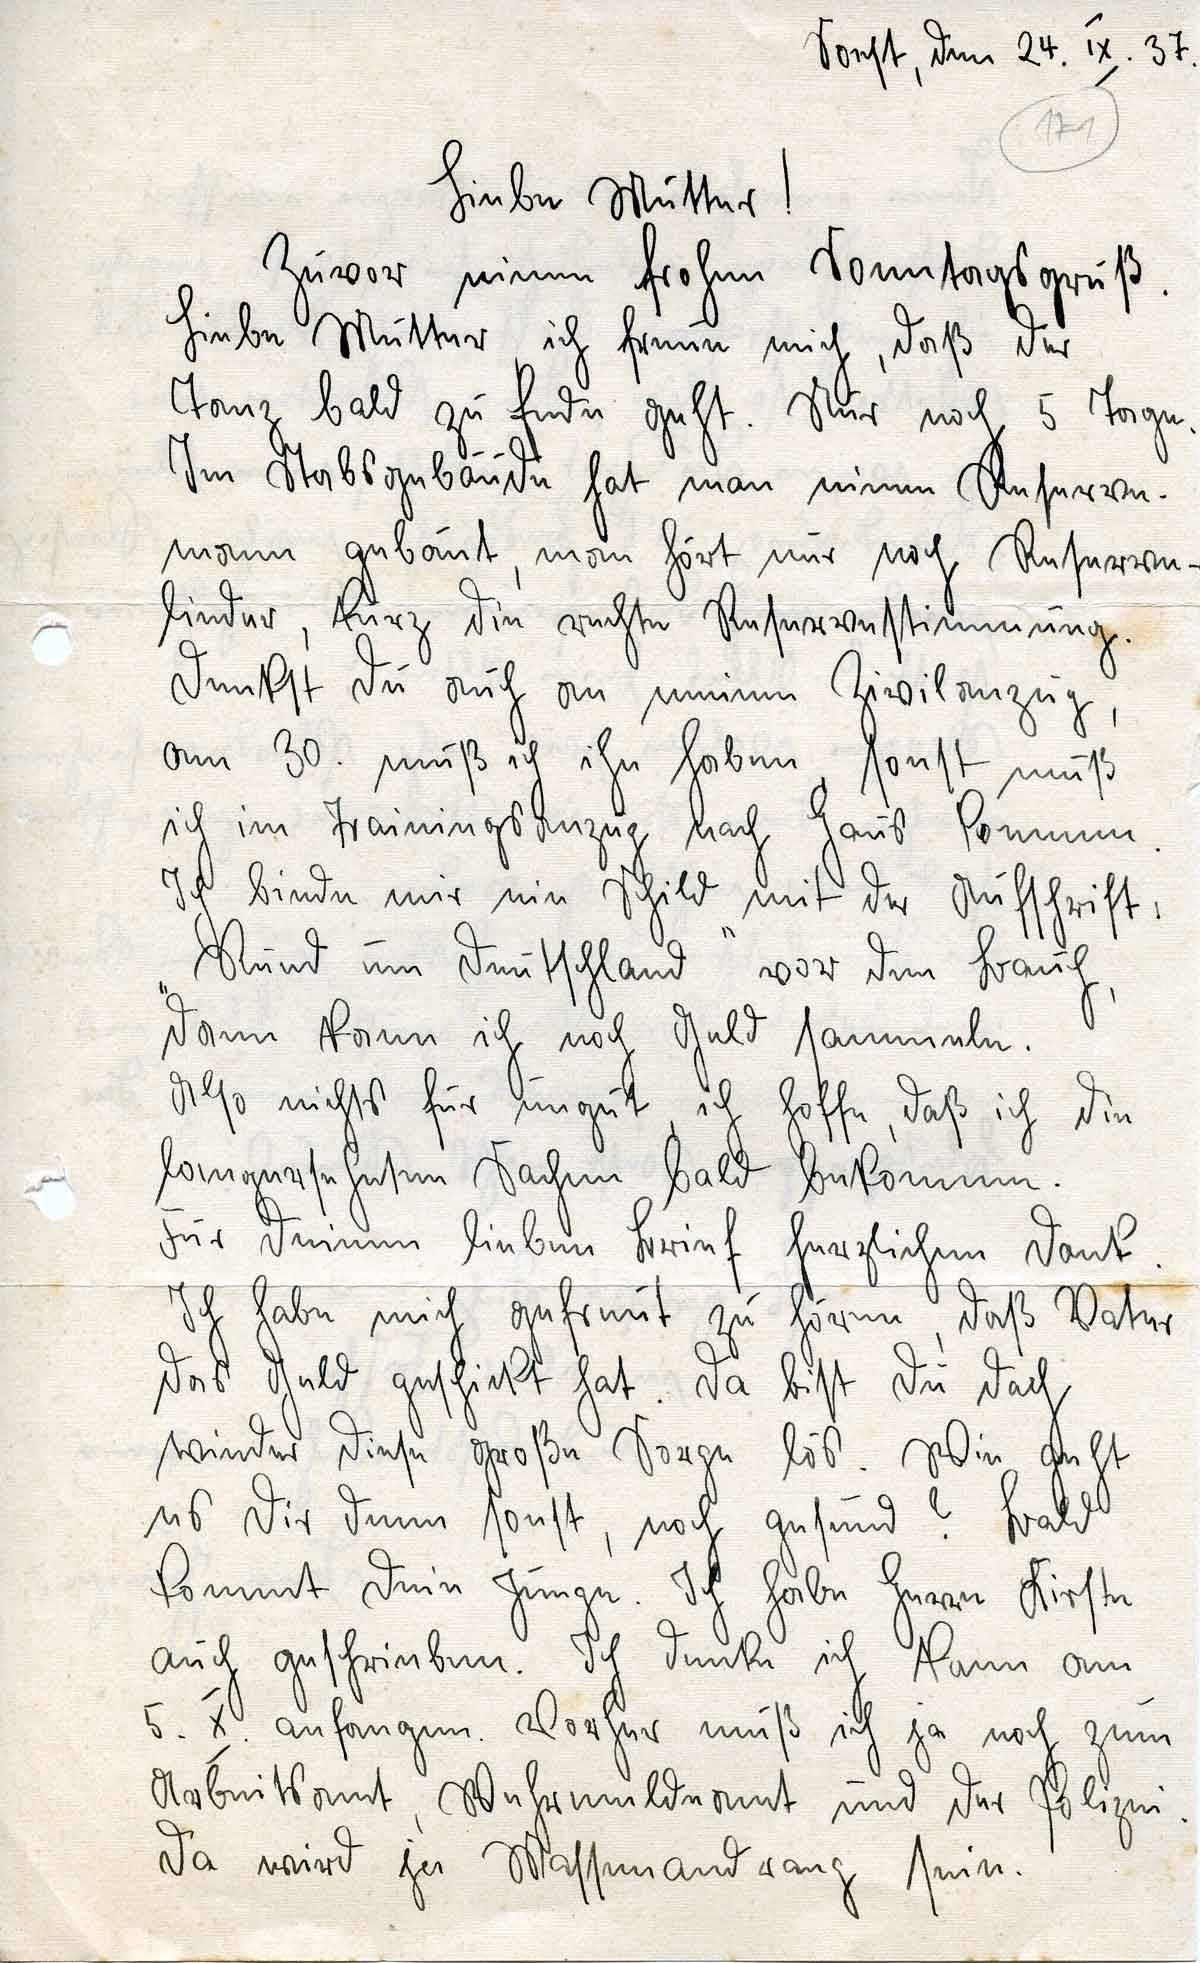 Soest, den 24. IX. 37.
171
Liebe Mutter!
Zuvor einen frohen Sonntagsgruß.
Liebe Mutter ich freue mich, daß der
Tanz bald zu Ende geht. Nur noch 5 Tage.
Im Stabsgebäude hat man einen Reserve-
mann gebaut, man hört nur noch Reserve-
lieder, kurz die rechte Reservestimmung.
Denkst Du auch an meinen Zivilanzug,
am 30. muß ich ihn haben, sonst muß
ich im Trainingsanzug nach Haus kommen.
Ich binde mir ein Schild mit der Aufschrift:
„Rund um Deutschland" vor den Bauch,
dann kann ich noch Geld sammeln.
Also nichts für ungut, ich hoffe, daß ich die
langersehnten Sachen bald bekomme.
Für Deinen lieben Brief herzlichen Dank.
Ich habe mich gefreut zu hören, daß Vater
das Geld geschickt hat. Da bist Du doch
wieder diese große Sorge los. Wie geht
es Dir denn sonst, noch gesund? Bald
kommt Dein Junge. Ich habe Herrn Kirste
auch geschrieben. Ich denke ich kann am
5. X. anfangen. Vorher muß ich ja noch zum
Arbeitsamt, Wehrmeldeamt und der Polizei.
Da wird ja Massenandrang sein.